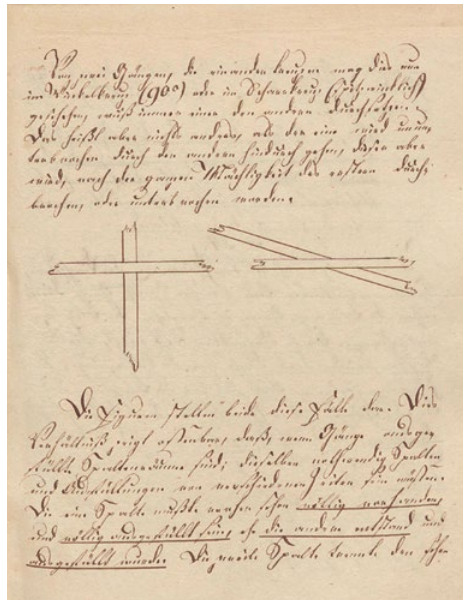 Von zwei Gängen, die einander kreuzen mag dies nun
im Winkelkreuz (90°) oder im Schaarkreuz (spitzwinklich)
geschehen, muß immer einer den andern durchsetzen.
Das heißt aber nichts anders, als der eine wird unun-
terbrochen durch den andern hindurch gehen, dieser aber
wird, nach der ganzen Mächtigkeit des erstern durch-
brochen, oder unterbrochen werden.
Die Figuren stellen beide diese Fälle dar. Dies
Verhältniß zeigt offenbar, daß, wenn Gänge ausge-
füllte Spaltenräume sind; dieselben nothwendig Spalten
und Ausfüllungen von verschiedenen Zeiten sein müssen.
Die eine Spalte mußte schon völlig vorhanden,
und völlig ausgefüllt sein, eh die andere entstand und
ausgefüllt wurde. Die zweite Spalte konnte den schon